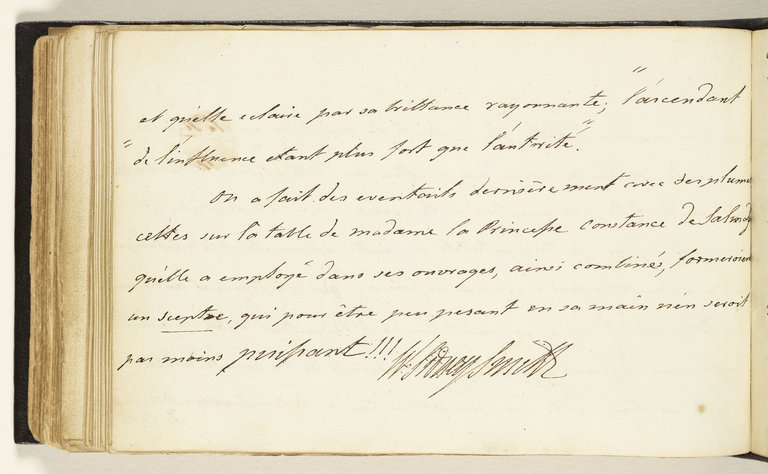 et qu'elle eclaire par sa brillance rayonnante; "l'ascendant
"de l'influence etant plus fort que l'autorité."
On a fait des eventails dernièrement avec des plumes
celles sur la table de madame la Princesse Constance de Salm
qu'elle a employé dans ses ouvrages, ainsi combinés, formeroient
un sceptre, qui pour être peu pesant en sa main n'en seroit
pas moins puissant!!!
W. Sidney Smith